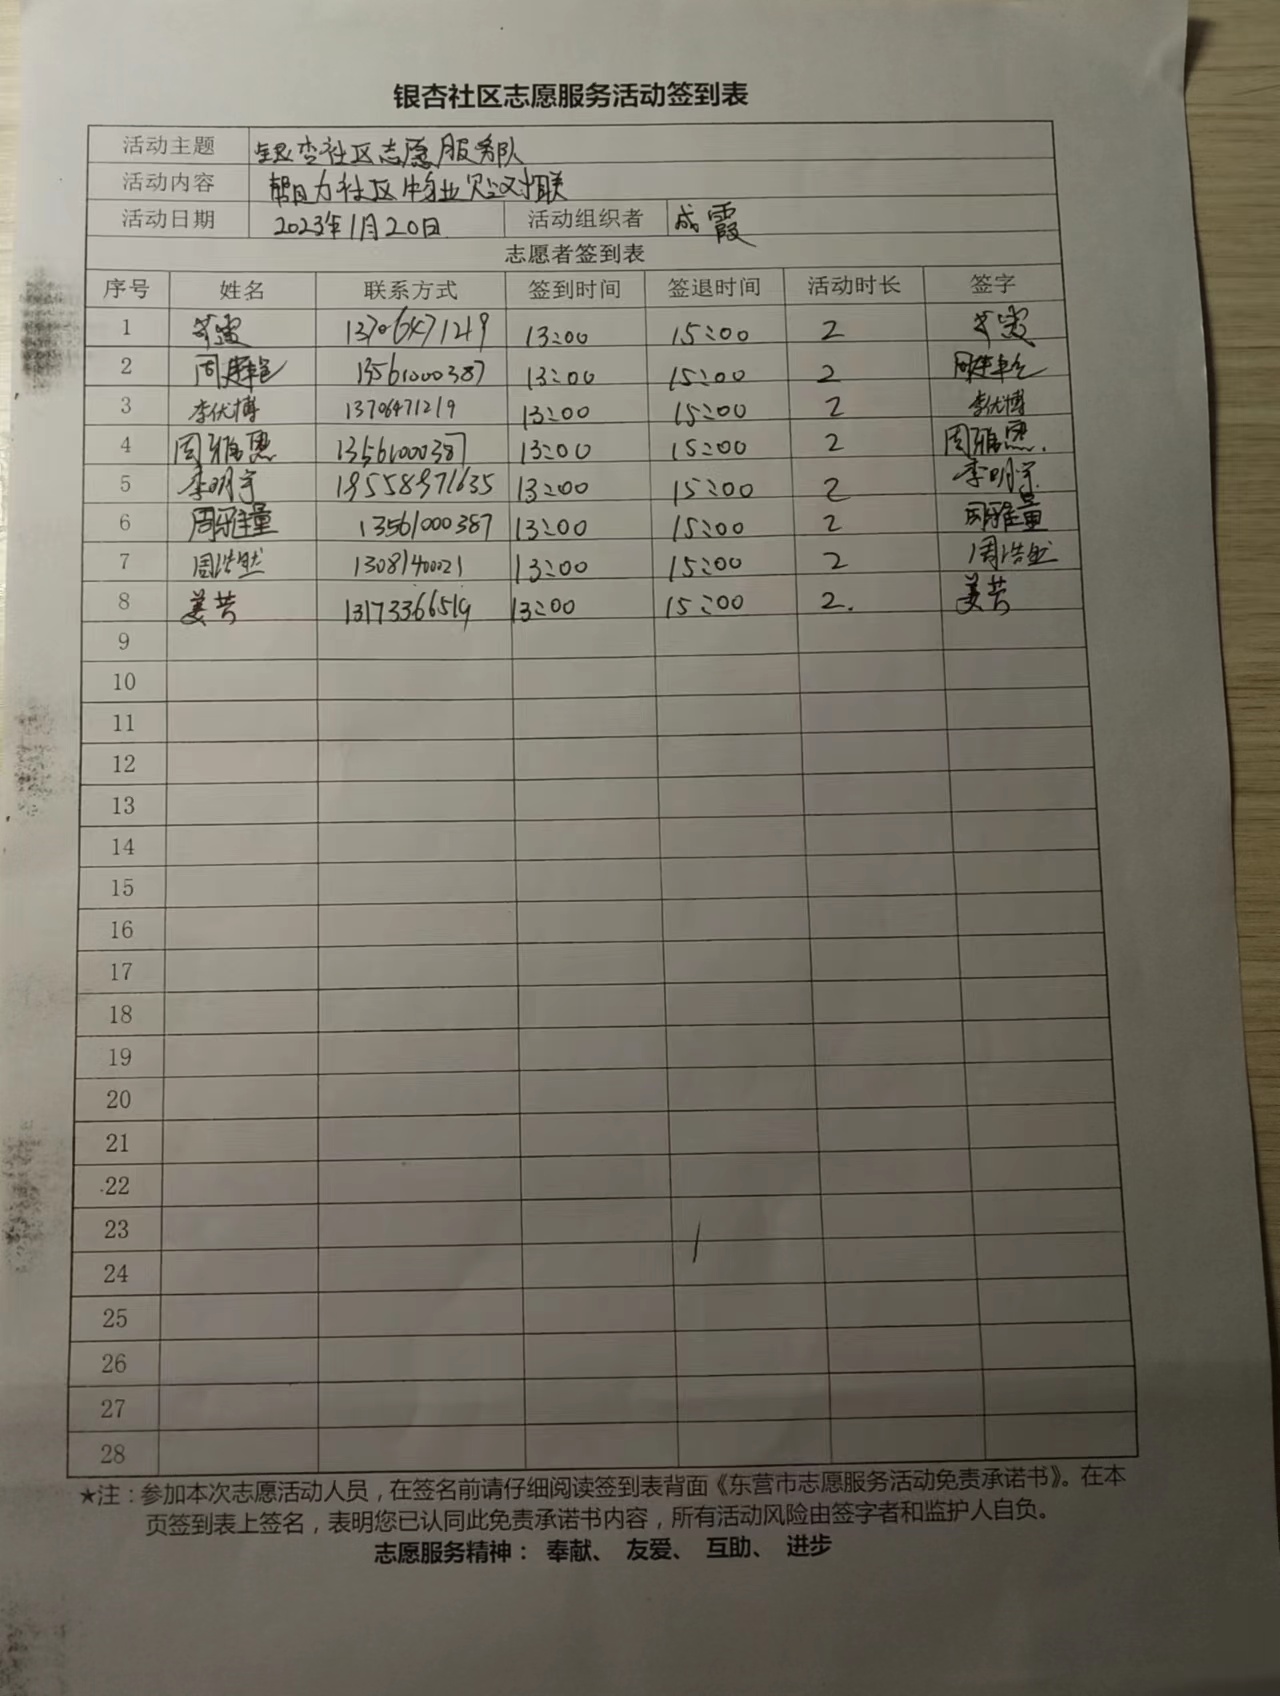 银杏社区志愿服务活动签到表
活动主题 银杏社区志愿服务队
活动内容 帮助社区物业贴对联
活动日期 2023年1月20日 活动组织者 成霞
志愿者签到表
序号 姓名 联系方式 签到时间 签退时间 活动时长 签字
1 13706471219 13:00 15:00 2
2 13561000387 13:00 15:00 2
3 李优博 13706471219 13:00 15:00 2 李优博
4 周雅恩 13561000387 13:00 15:00 2 周雅恩.
5 李明宇 13:00 15:00 2 李明宇
6 周雅量 13561000387 13:00 15:00 2 周雅量
7 周浩然 13081400021 13:00 15:00 2 周浩然
8 姜芳 13173366519 13:00 15:00 2. 姜芳
9
10
11
12
13
14
15
16
17
18
19
20
21
22
23
24
25
26
27
28
★注：参加本次志愿活动人员，在签名前请仔细阅读签到表背面《东营市志愿服务活动免责承诺书》。在本
页签到表上签名，表明您已认同此免责承诺书内容，所有活动风险由签字者和监护人自负。
志愿服务精神： 奉献、 友爱、 互助、 进步